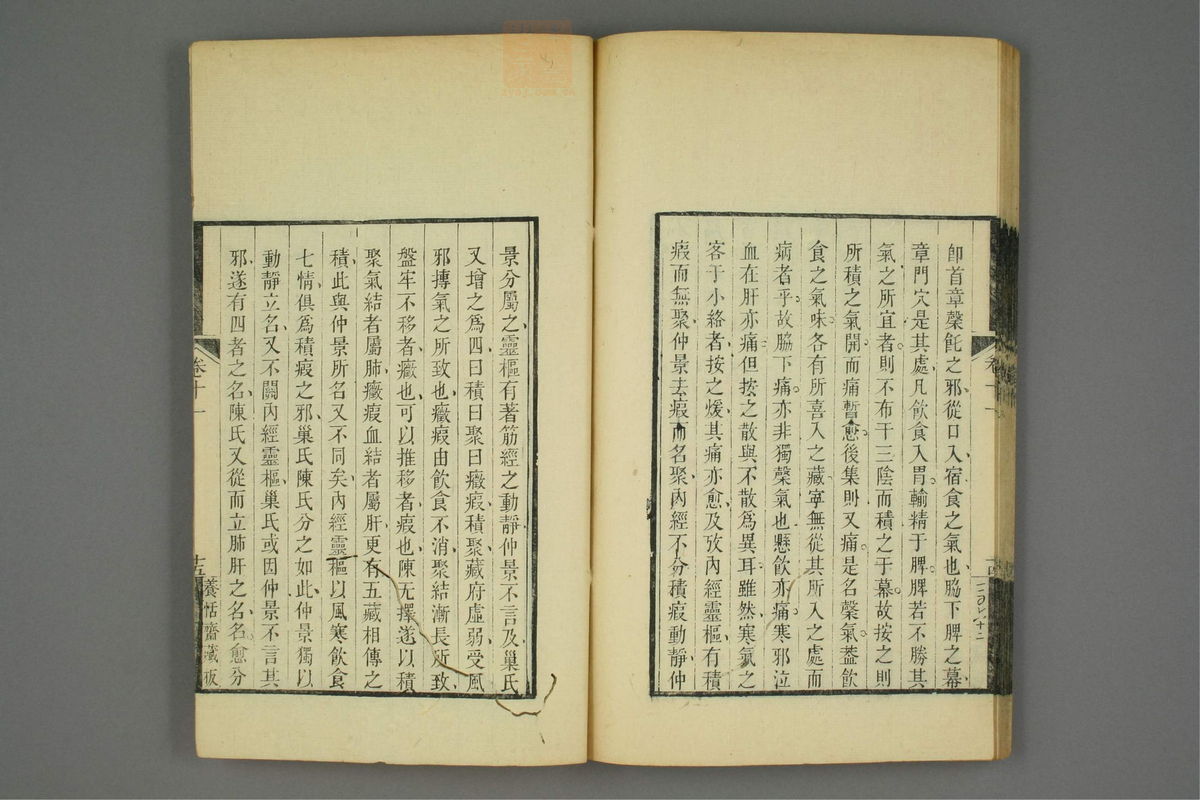 卽首章䅽飥之邪從口入宿食之氣也脇下脾之幕
章門穴是其處凡飲食入胃輸精于脾脾若不勝其
氣之所宜者則不布干三陰而積之于幕故按之則
所積之氣開而痛暫愈後集則又痛是名䅽氣葢飲
食之氣味各有所喜入之藏寧無從其所入之處而
病者乎故脇下痛亦非獨䅽氣也懸飲亦痛寒邪泣
血在肝亦痛但按之散與不散爲異耳雖然寒氣之
客于小絡者按之煖其痛亦愈及攷內經靈樞有積
瘕而無聚仲景去瘕而名聚內經不分積瘕動靜仲
卷十一
景分屬之靈樞有著筋經之動靜仲景不言及巢氏
又增之爲四曰積曰聚曰癥瘕積聚藏府虛弱受風
邪摶氣之所致也癥瘕由飲食不消聚結漸長所致
盤牢不移者癥也可以推移者瘕也陳无擇遂以積
聚氣結者屬肺癥瘕血結者屬肝更有五藏相傳之
積此與仲景所名又不同矣內經靈樞以風寒飲食
七情俱爲積瘕之邪巢氏陳氏分之如此仲景獨以
動靜立名又不關內經靈樞巢氏或因仲景不言其
邪遂有四者之名陳氏又從而立肺肝之名名愈分
卷十一
十五
養恬齋藏板